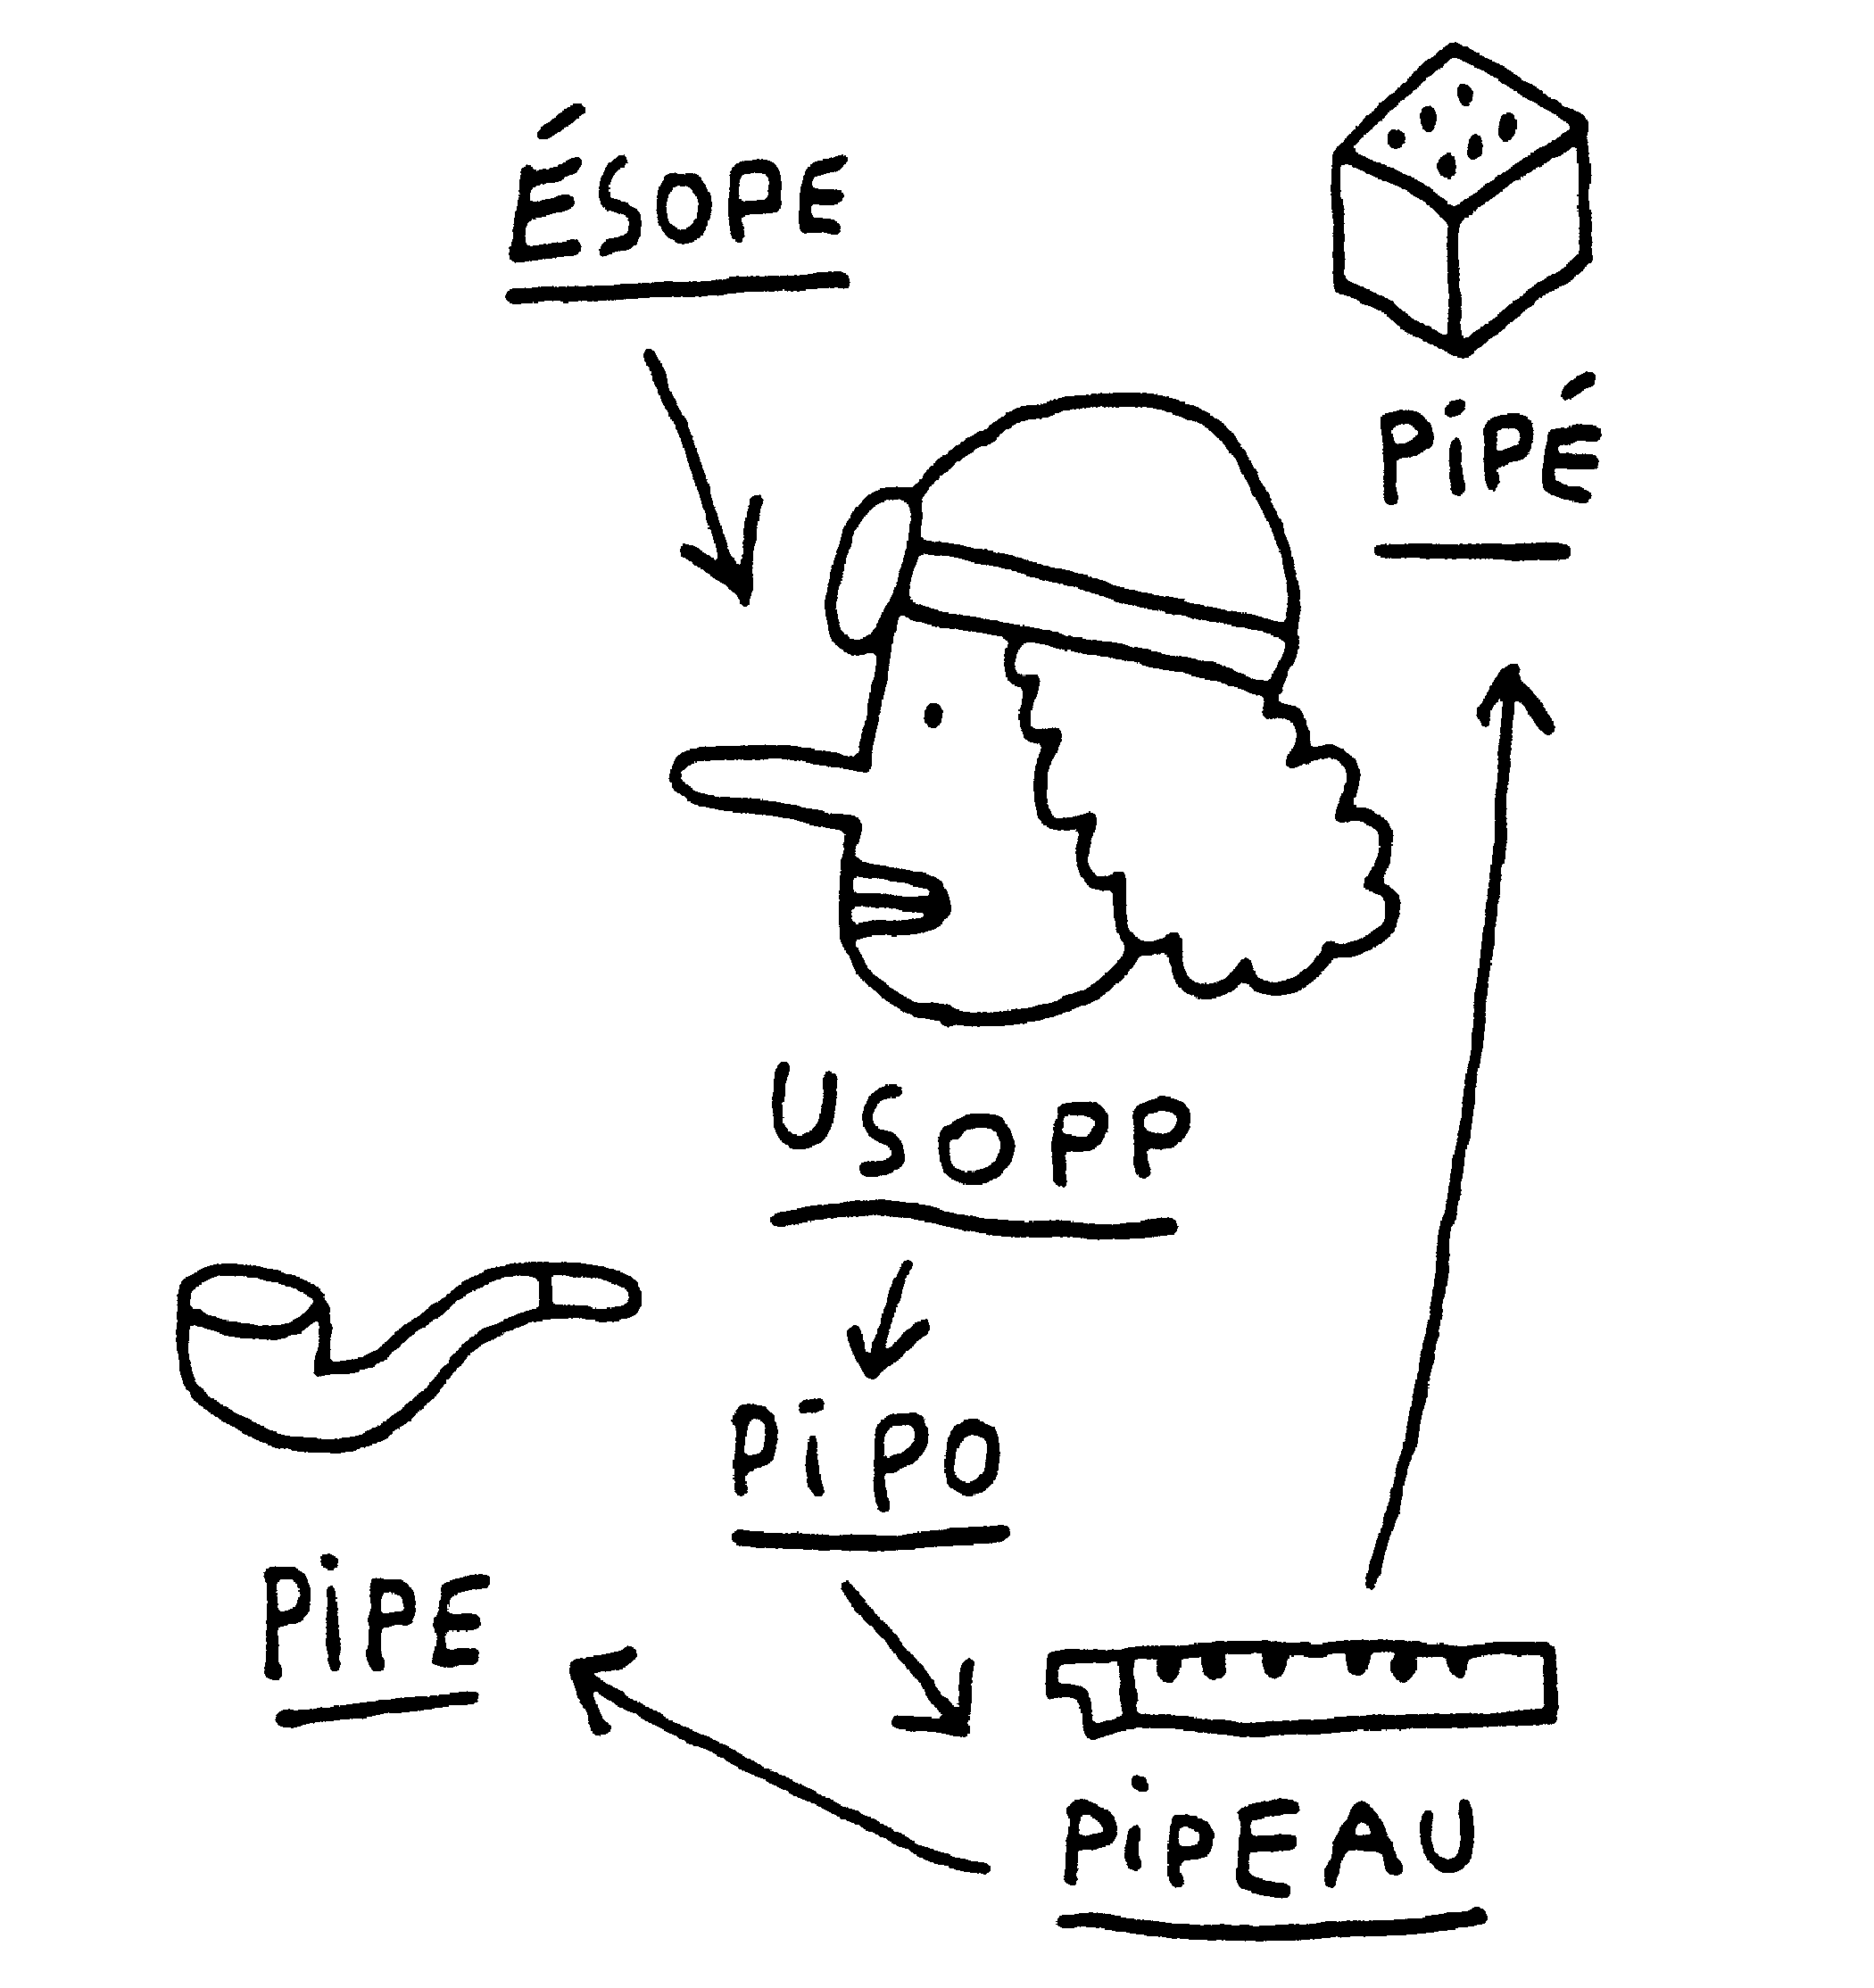 ÉSOPE
PiPÉ
USOPP
PiPO
PiPE
PiPEAU